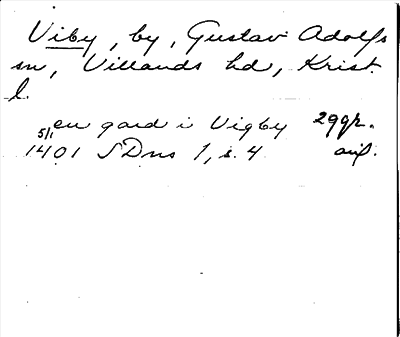 Viby, by, Gustav Adolfs
sn, Villands hd, Krist.
l.
en gard i Vigby 29qh.
5/1 1401 SDns 1, s. 4 avf.